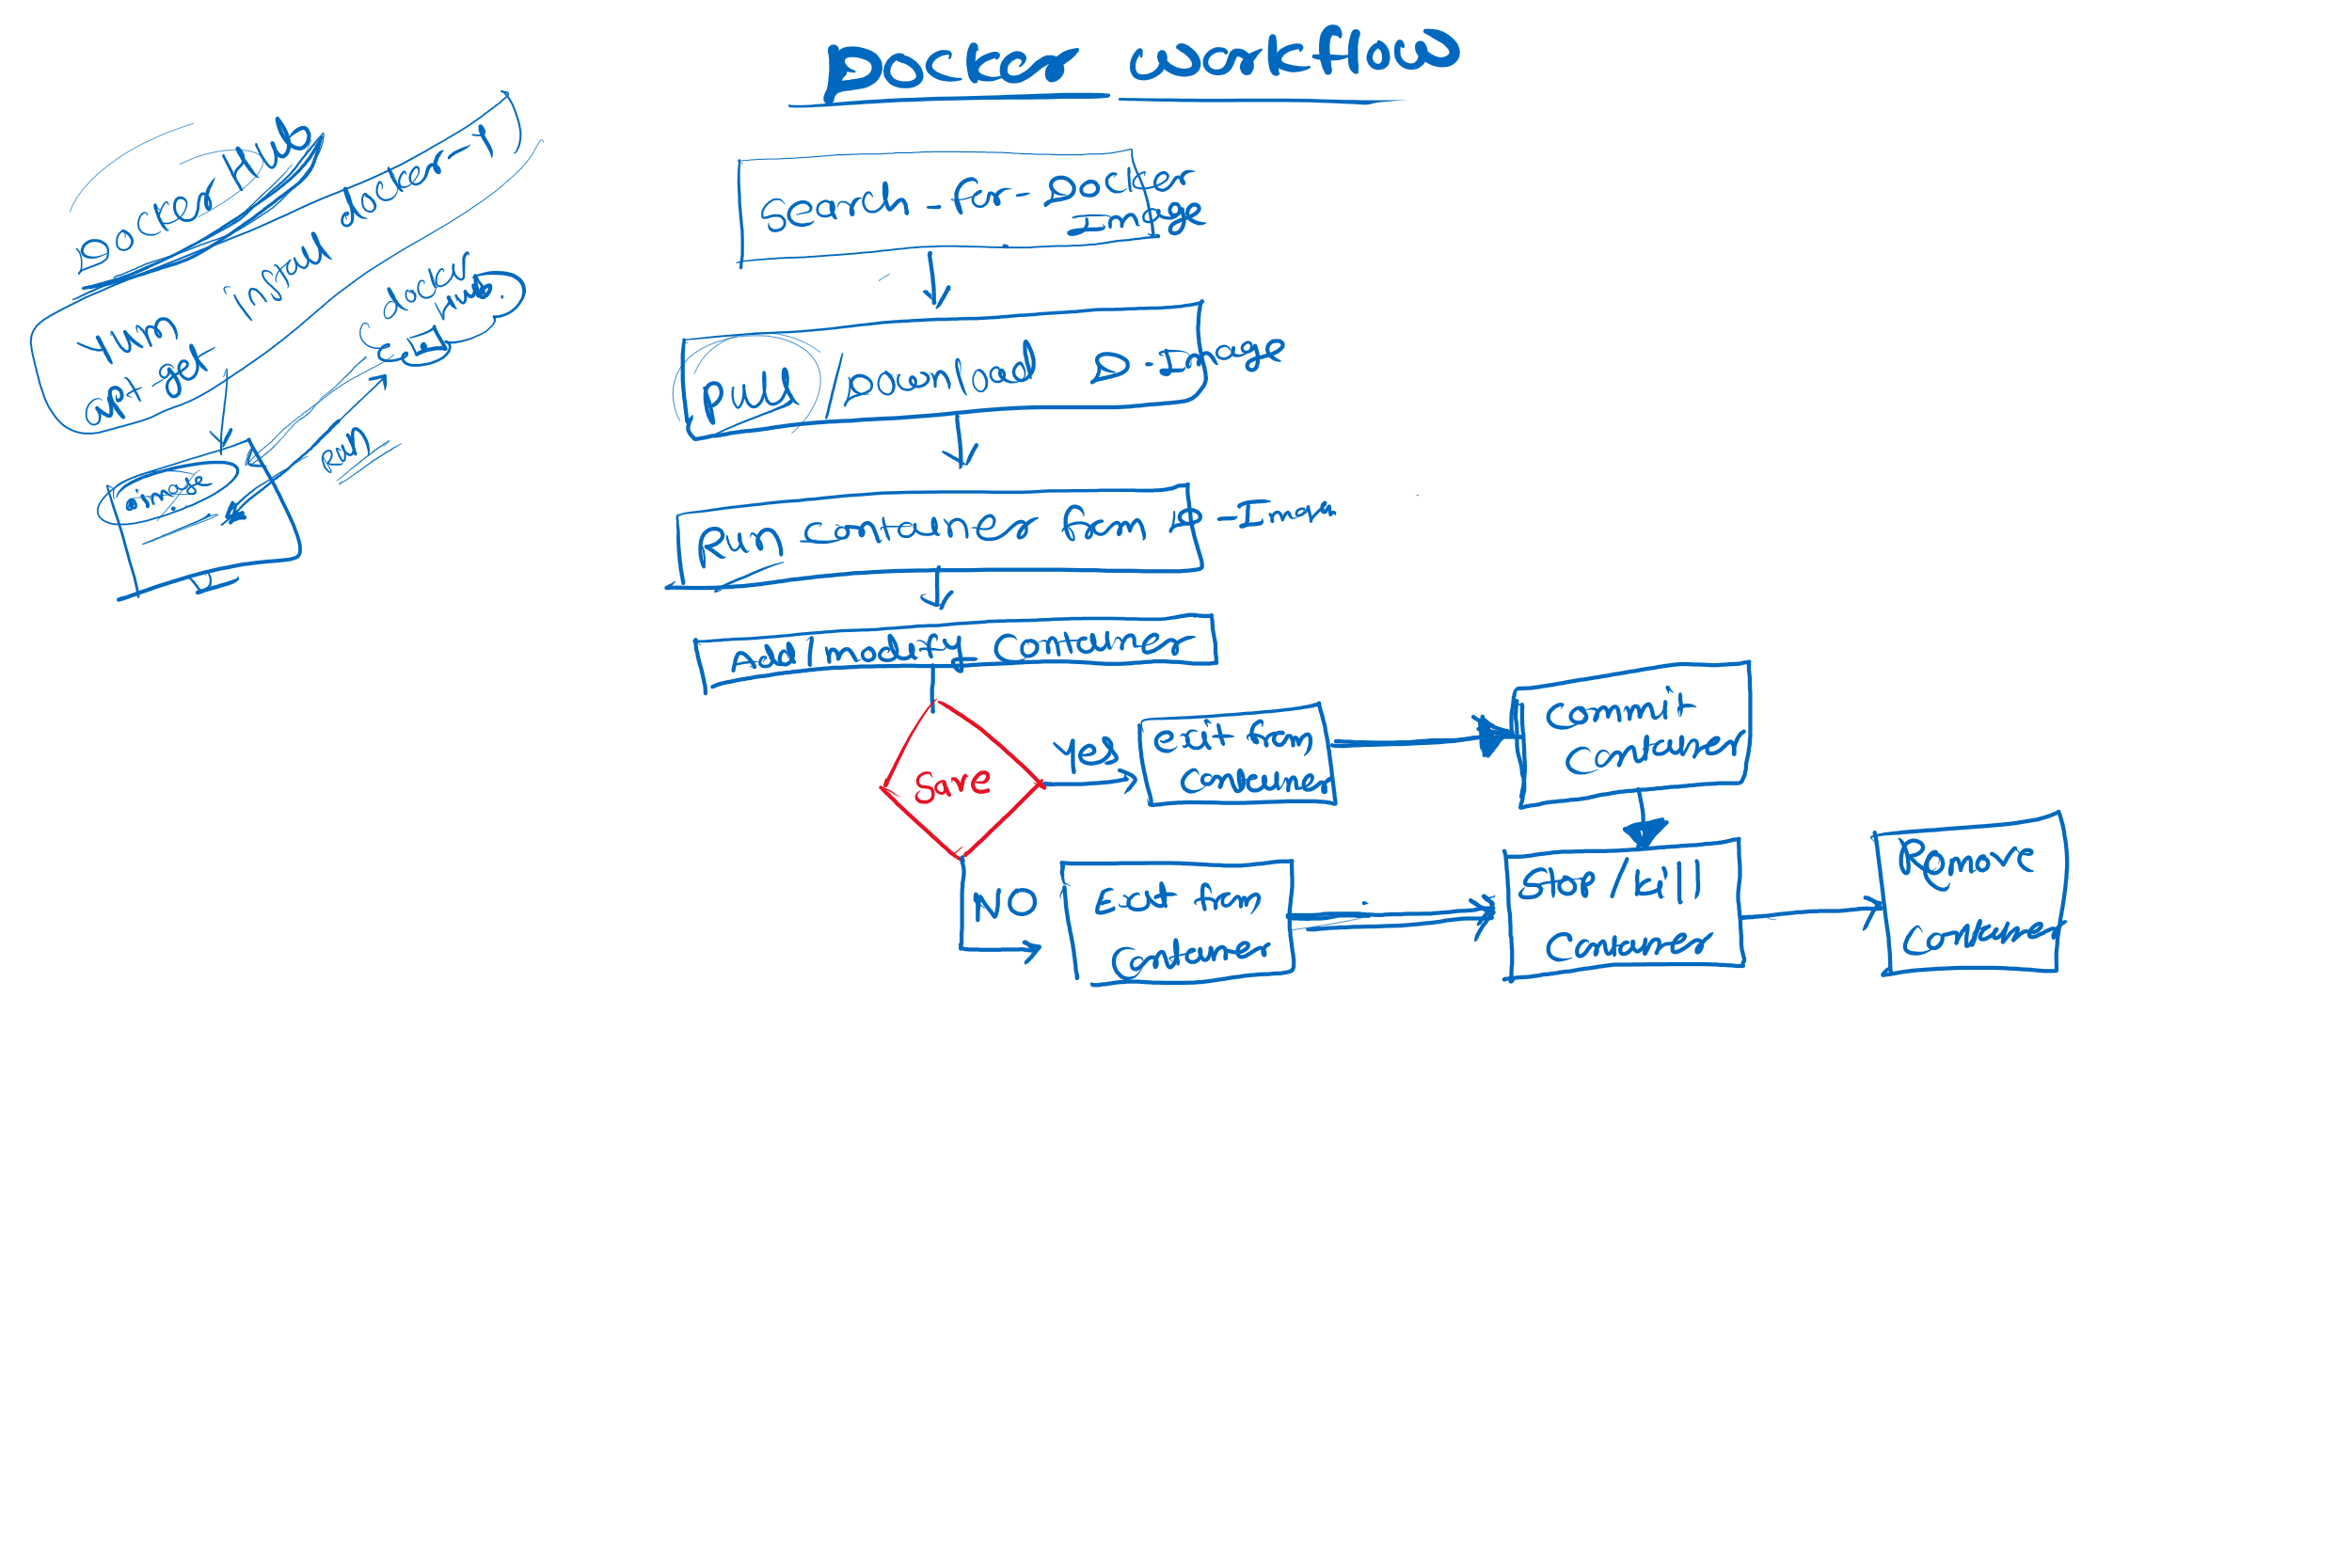 Docker workflow
Docker Hub
Yum install docker -y
apt-get
docker
Hub
image
Search - for - Docker
Image
pull / Download D-Image
Run container from D - Image
Add / modify container
Save
Yes
exit from
container
Commit
container
NO
Exit from
container
Stop / kill
Container
Remove
Container